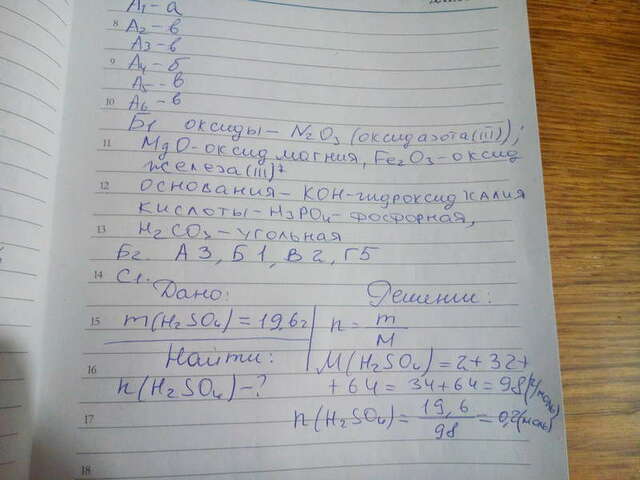 А1 - а
8 А2 - в
А3 - в
9 А4 - б
А5 - в
10 А6 - в
Б1 оксиды - N2O3 (оксид азота (III));
11 MgO - оксид магния, Fe2O3 - оксид
железа (III)
12 основания - KOH - гидроксид калия
кислоты - H3PO4 - фосфорная,
13 H2CO3 - угольная
Б2. А3, Б1, В2, Г5
14 С1.
Дано: Решении:
15 m(H2SO4) = 19,6г n = m/M
16 Найти: M(H2SO4) = 2 + 32 +
n(H2SO4) - ? + 64 = 34 + 64 = 98 (г/моль)
17 n(H2SO4) = 19,6/98 = 0,2 (моль)
18